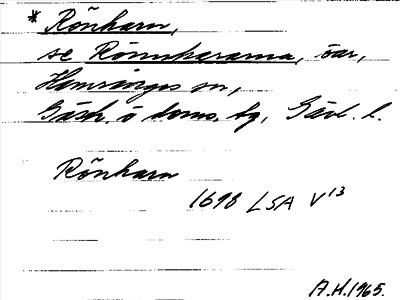 * Rönharn,
se Rönnhararna, öar,
Hamrånges sn,
Gästr. ö doms. bg, Gävl. l.
Rönharn
1698 LSA V 13
A.H. 1965.